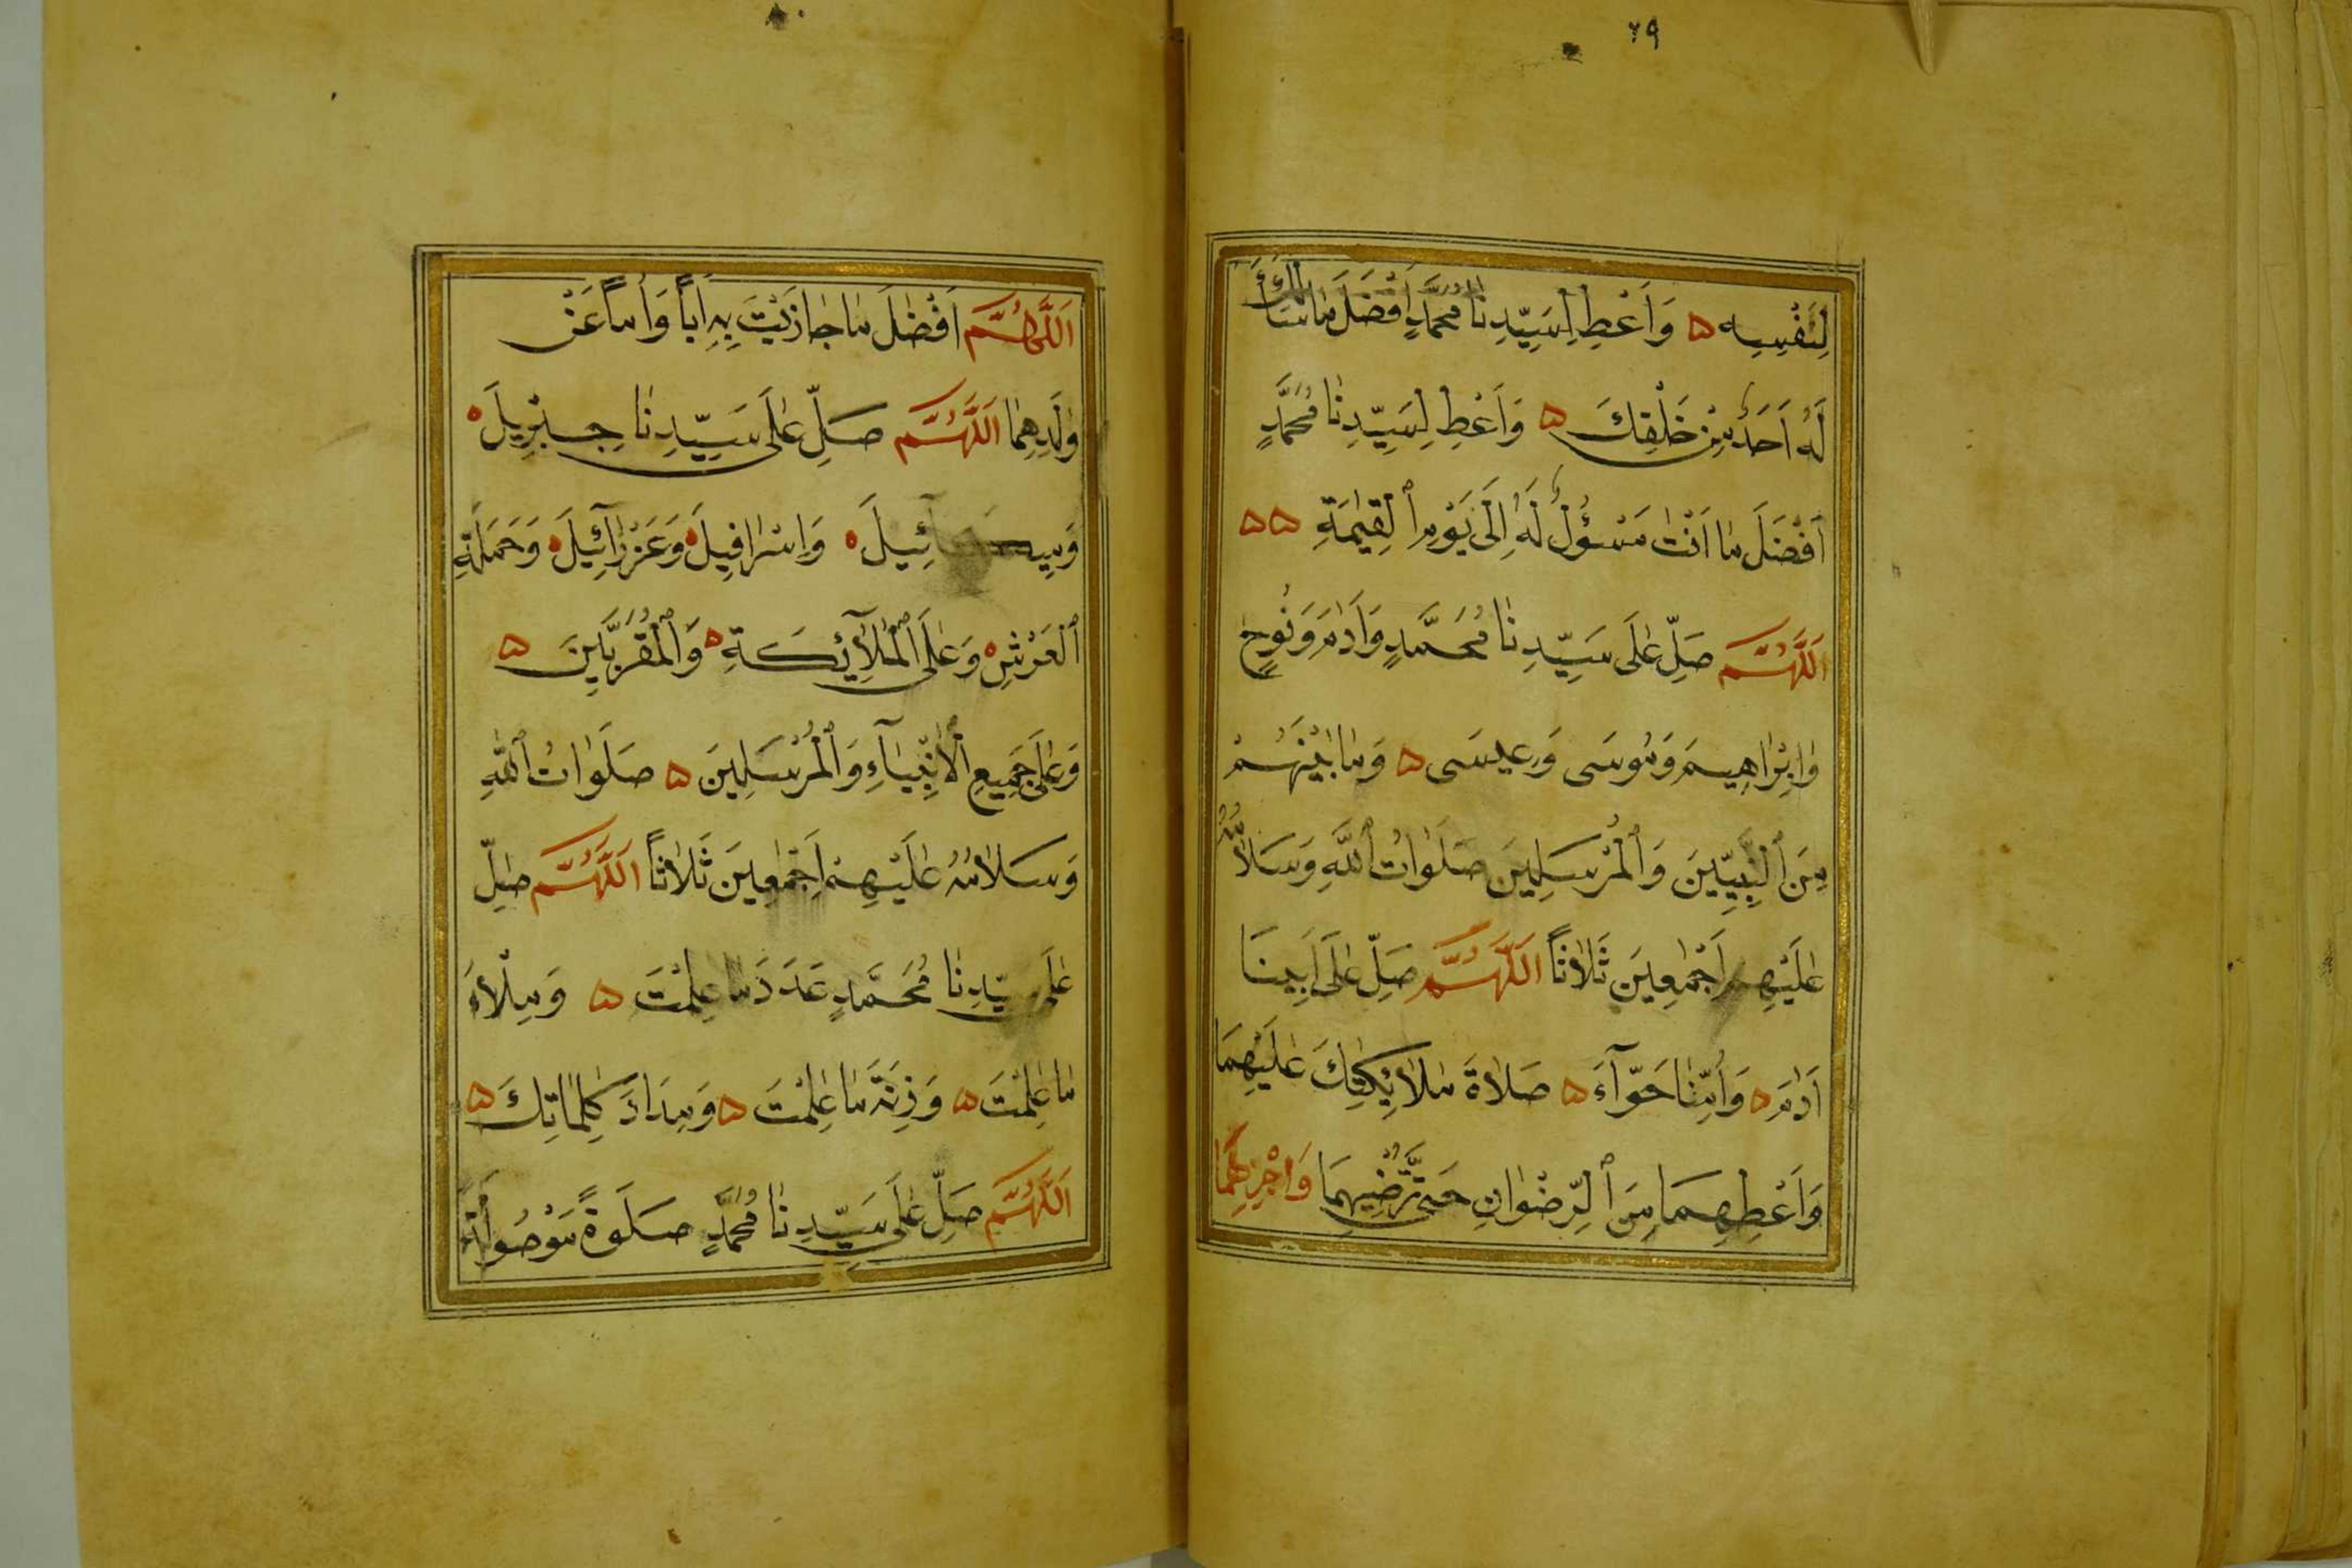 ٢٩
لِنَفْسِهِ ۵ وَاَعْطِ لِسَيِّدِنَا مُحَمَّدٍ اَفْضَلَ مَا سَأَلَكَ
لَهُ اَحَدٌ مِنْ خَلْقِكَ ۵ وَاَعْطِ لِسَيِّدِنَا مُحَمَّدٍ
اَفْضَلَ مَا اَنْتَ مَسْؤُلٌ لَهُ اِلَى يَوْمِ الْقِيٰمَةِ ۵۵
اَللَّهُمَّ صَلِّ عَلَى سَيِّدِنَا مُحَمَّدٍ وَاٰدَمَ وَنُوحٍ
وَاِبْرَاهِيمَ وَمُوسَى وَعِيسَى ۵ وَمَا بَيْنَهُمْ
مِنَ النَّبِيِّينَ وَالْمُرْسَلِينَ صَلَوَاتُ اللّٰهِ وَسَلَامُهُ
عَلَيْهِمْ اَجْمَعِينَ ثَلَاثًا اَللَّهُمَّ صَلِّ عَلَى اَبِينَا
اٰدَمَ ۵ وَاُمِّنَا حَوَّآءَ ۵ صَلَاةَ مَلَائِكَتِكَ عَلَيْهِمَا
وَاَعْطِهِمَا مِنَ الرِّضْوَانِ حَتَّى تُرْضِيَهُمَا وَاجْزِهِمَا
اَللَّهُمَّ اَفْضَلَ مَا جَازَيْتَ بِهِ اَبًا وَاُمًّا عَنْ
وَلَدِهِمَا اَللَّهُمَّ صَلِّ عَلَى سَيِّدِنَا جِبْرِيلَ ۵
وَمِيكَائِيلَ ۵ وَاِسْرَافِيلَ ۵ وَعَزْرَآئِيلَ ۵ وَحَمَلَةِ
الْعَرْشِ ۵ وَعَلَى الْمَلَآئِكَةِ ۵ وَالْمُقَرَّبِينَ ۵
وَعَلَى جَمِيعِ الْاَنْبِيَآءِ وَالْمُرْسَلِينَ ۵ صَلَوَاتُ اللّٰهِ
وَسَلَامُهُ عَلَيْهِمْ اَجْمَعِينَ ثَلَاثًا اَللَّهُمَّ صَلِّ
عَلَى سَيِّدِنَا مُحَمَّدٍ عَدَدَ مَا عَلِمْتَ ۵ وَمِلْاَءَ
مَا عَلِمْتَ ۵ وَزِنَةَ مَا عَلِمْتَ ۵ وَمِدَادَ كَلِمَاتِكَ ۵
اَللَّهُمَّ صَلِّ عَلَى سَيِّدِنَا مُحَمَّدٍ صَلَوةً مَوْصُولَةً